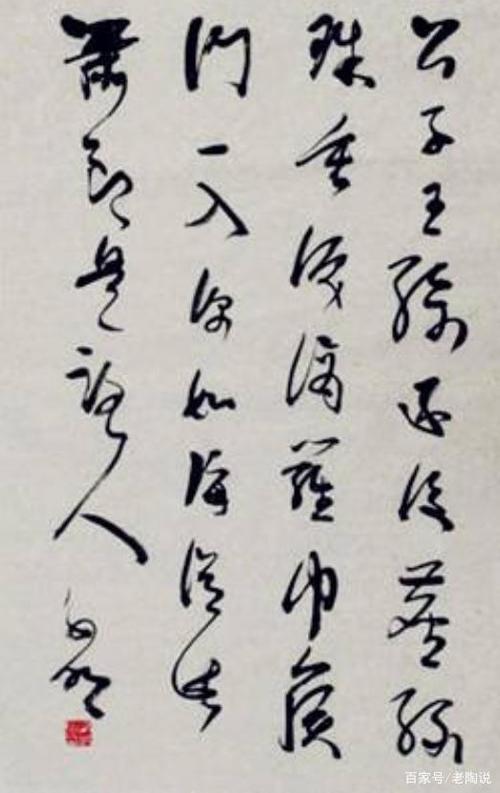 公子王孫逐後塵綠
珠垂淚滴羅巾侯
門一入深如海從此
蕭郎是路人
百家号/老陶说